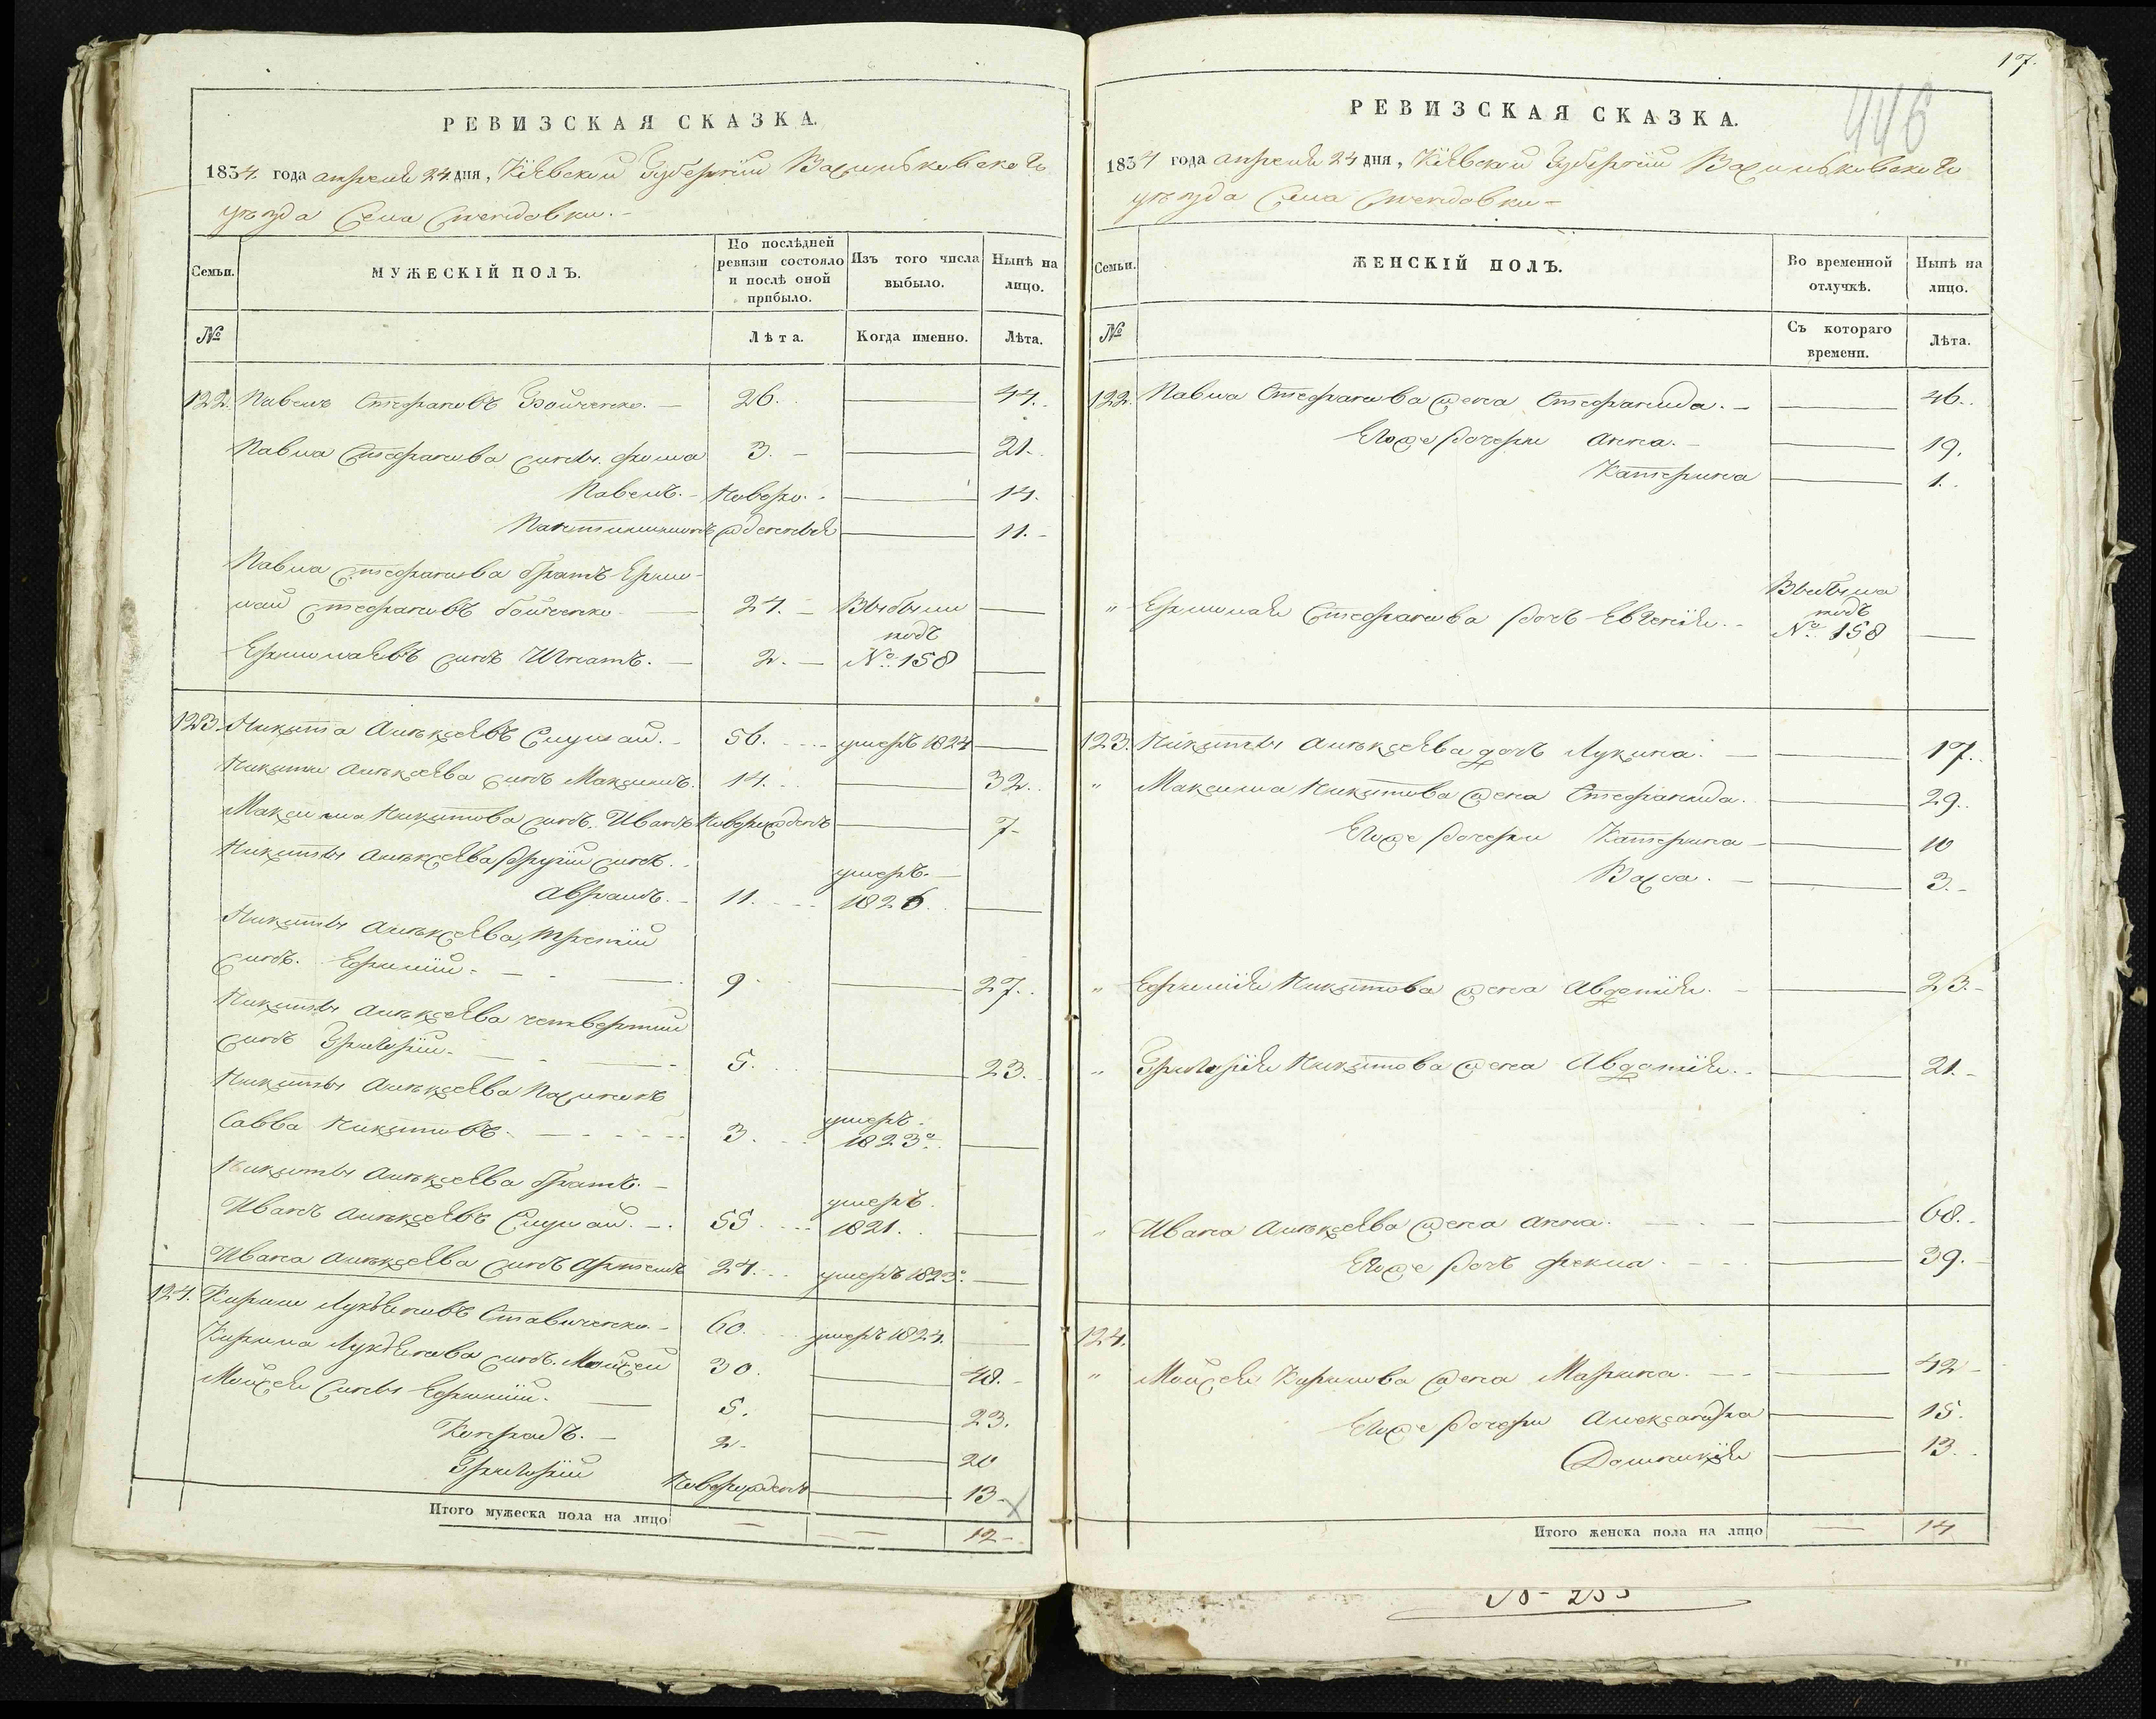 РЕВИЗСКАЯ СКАЗКА.
1834. года апреля 24. дня, Кіевской Губерніи Васильковскаго
уѣзда Села
Семьи.
МУЖЕСКІЙ ПОЛЪ.
По послѣдней
ревизіи состояло
и послѣ оной
прибыло.
Изъ того числа
выбыло.
Нынѣ на
лицо.
№
Лѣта.
Когда именно.
Лѣта.
122. Павелъ Стефановъ Бойченко. 26. 44.
Павла Стефанова сыны. Фома 3. 21.
Павелъ. Новоро- 14.
Пантилимонъ жденныя 11.
Павла Стефанова братъ Ермо-
лай Стефановъ Бойченко 24. Выбыли
подъ
Ермолаевъ сынъ Игнатъ. 2. № 158
123. Никита Алѣксѣевъ 56. умеръ 1824
Никиты Алѣксѣева сынъ Максимъ. 14. 32.
Максима Никитова сынъ. Иванъ Новорожденъ 7
Никиты Алѣксѣева другій сынъ
Абрамъ. 11. умеръ. 1826.
Никиты Алѣксѣева, третій
сынъ. Ефимій. 9 27.
Никиты Алѣксѣева четвертый
сынъ Григорій. 5. 23.
Никиты Алѣксѣева
Савва Никитовъ. 3. умеръ. 1823
Никиты Алѣксѣева братъ.
Иванъ Алѣксѣевъ 55 умеръ. 1821.
Ивана Алѣксѣева сынъ Артемъ 24. умеръ 1823
124. Кирило Лукьяновъ Ставиченко 60. умеръ 1824.
Кирила Лукьянова сынъ. Мойсей 30. 48.
Мойсея сыны Ефимій. 5. 23.
Кондратъ. 2 20
Григорій Новорожденъ 13
Итого мужеска пола на лицо 12
17.
446
РЕВИЗСКАЯ СКАЗКА.
1834 года апреля 24 дня, Кіевской Губерніи Васильковскаго
уѣзда Села
Семьи.
ЖЕНСКІЙ ПОЛЪ.
Во временной
отлучкѣ.
Нынѣ на
лицо.
№
Съ котораго
времени.
Лѣта.
122. Павла Стефанова жена Стефанида. 46.
Егоже дочери Анна. 19.
Катерина 1.
" Ермолая Стефанова дочь Евгенія. Выбыла
подъ
№ 158
123. Никиты Алѣксѣева дочь Лукина. 17.
" Максима Никитова жена Стефанида. 29.
Егоже дочери Катерина 10
Васса. 3.
" Ефимія Никитова жена Авдотія. 23.
" Григорія Никитова жена Авдотія. 21.
" Ивана Алѣксѣева жена Анна. 68.
Егоже дочь Фекла. 39.
124.
" Мойсея Кирилова жена Марина. 42
Егоже дочери Александра 15.
Домникія 13.
Итого женска пола на лицо 14